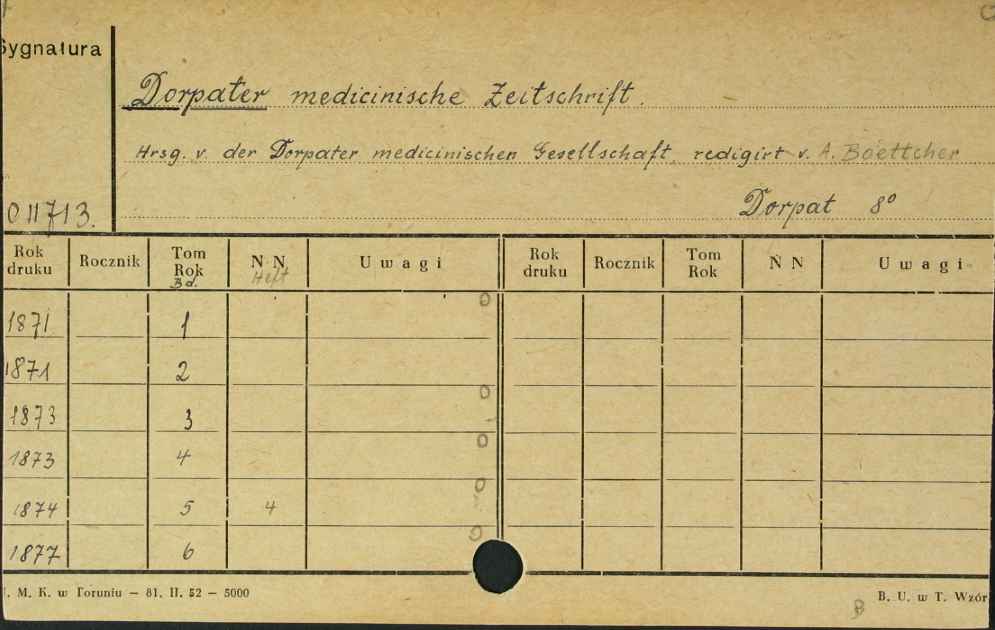 Sygnatura
Dorpater medicinische Zeitschrift.
Hrsg. v. der Dorpater medicinischen Gesellschaft, redigirt v. A. Boettcher
011713. Dorpat 8°
Rok druku Rocznik Tom Rok Bd. N N Heft Uwagi Rok druku Rocznik Tom Rok N N Uwagi
1871 1
1871 2
1873 3
1873 4
1874 5 4
1877 6
U. M. K. w Toruniu — 81. II. 52 — 5000 B. U. w T. Wzór
B